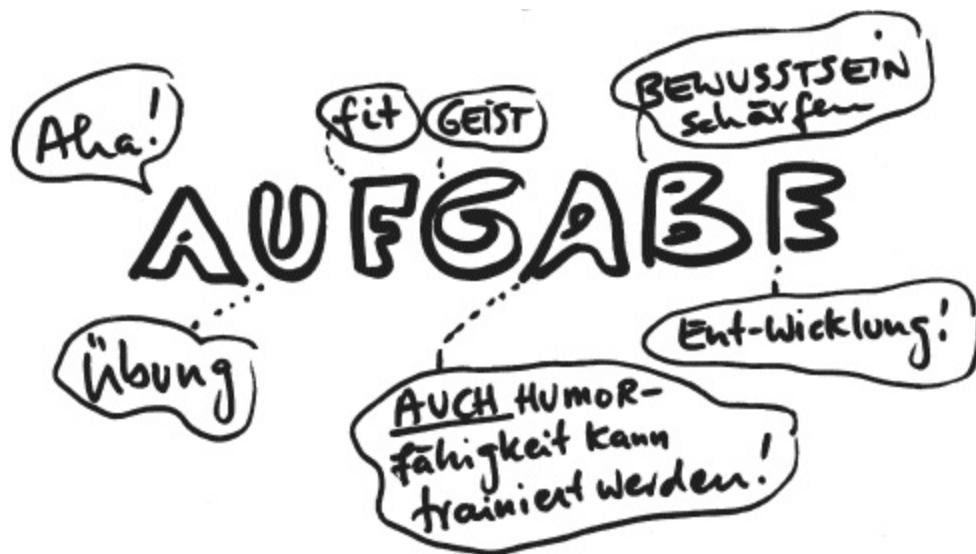 Aha!
fit
GEIST
BEWUSSTSEIN
schärfen
AUFGABE
Übung
AUCH HUMOR-
fähigkeit kann
trainiert werden!
Ent-Wicklung!